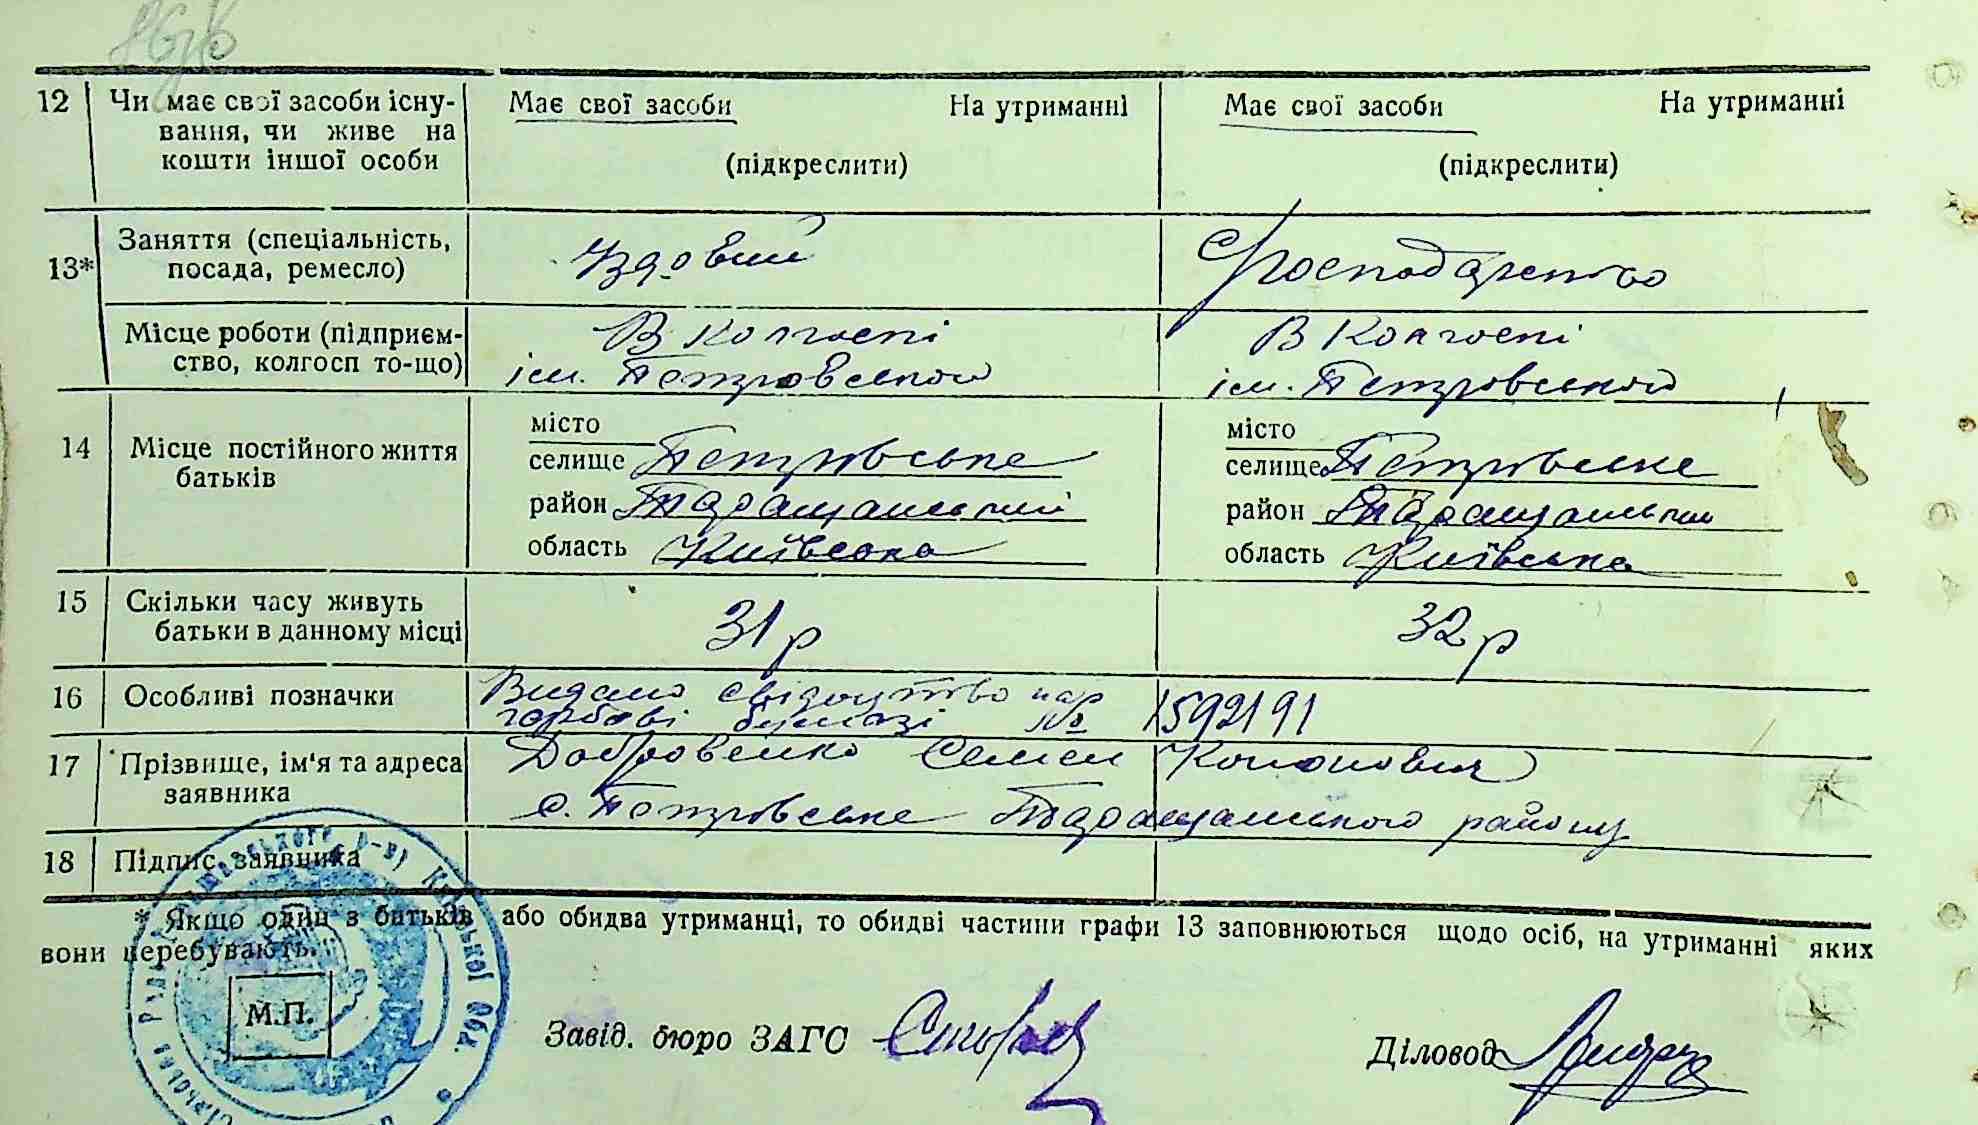 12 Чи має свої засоби існу-
вання, чи живе на
кошти іншої особи
Має свої засоби На утриманні
(підкреслити)
Має свої засоби На утриманні
(підкреслити)
13* Заняття (спеціальність,
посада, ремесло)
Їздовий
Господарство
Місце роботи (підприєм-
ство, колгосп то-що)
В колгоспі
ім. Петровського
В колгоспі
ім. Петровського
14 Місце постійного життя
батьків
місто
селище Петровське
район Таращанський
область Київська
місто
селище Петровське
район Таращанський
область Київська
15 Скільки часу живуть
батьки в данному місці
31 р
32 р
16 Особливі позначки
Видано свідоцтво на
гербові бумазі № 1592191
17 Прізвище, ім'я та адреса
заявника
Добровенко Семен Кононович
с. Петровське Таращанського району
18 Підпис заявника
* Якщо один з батьків або обидва утриманці, то обидві частини графи 13 заповнюються щодо осіб, на утриманні яких
вони перебувають.
М.П.
Київської Обл.
Завід. бюро ЗАГС
Діловод